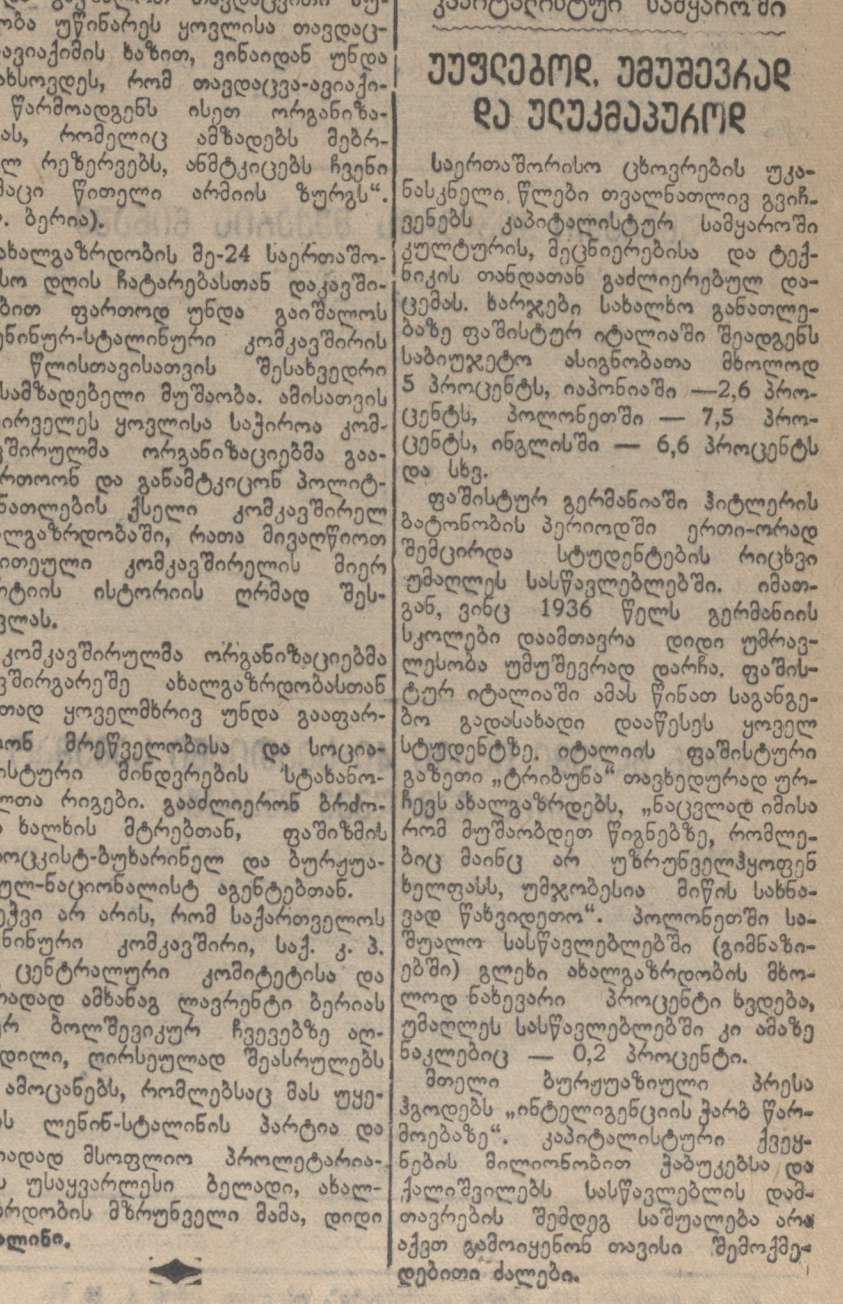 ობა უწინარეს ყოვლისა თავდაც-
ავიაქიმის ხაზით, ვინაიდან უნდა
ახსოვდეს, რომ თავდაცვა-ავიაქი-
წარმოადგენს ისეთ ორგანიზა-
ას, რომელიც ამზადებს მებრ-
ლ რეზერვებს, ანმტკიცებს ჩვენი
მაცი წითელი არმიის ზურგს“.
. ბერია).
ახალგაზრდობის მე-24 საერთაშო-
სო დღის ჩატარებასთან დაკავში-
ბით ფართოდ უნდა გაიშალოს
ენინურ-სტალინური კომკავშირის
წლისთავისათვის შესახვედრი
სამზადებელი მუშაობა. ამისათვის
ირველეს ყოვლისა საჭიროა კომ-
ვშირულმა ორგანიზაციებმა გაა-
რთოონ და განამტკიცონ პოლიტ-
ნათლების ქსელი კომკავშირელ
ლგაზრდობაში, რათა მივაღწიოთ
ითეული კომკავშირელის მიერ
რტიის ისტორიის ღრმად შეს-
ვლას.
კომკავშირულმა ორგანიზაციებმა
ვშირგარეშე ახალგაზრდობასთან
თად ყოველმხრივ უნდა გააფარ-
ონ მრეწველობისა და სოცია-
ისტური მინდვრების სტახანო-
ლთა რიგები. გააძლიერონ ბრძო-
ხალხის მტრებთან, ფაშიზმის
ოცკისტ-ბუხარინელ და ბურჟუა-
ულ-ნაციონალისტ აგენტებთან.
ეჭვი არ არის, რომ საქართველოს
ნინური კომკავშირი, საქ. კ. პ.
ცენტრალური კომიტეტისა და
რადად ამხანაგ ლავრენტი ბერიას
რ ბოლშევიკურ ჩვევებზე აღ-
დილი, ღირსეულად შეასრულებს
ამოცანებს, რომლებსაც მას უყე-
ს ლენინ-სტალინის პარტია და
იადად მსოფლიო პროლეტარია-
ს უსაყვარლესი ბელადი, ახალ-
რდობის მზრუნველი მამა, დიდი
ალინი.
კაპიტალისტურ სამყაროში
უუფლებოდ, უმუშევრად
და ულუკმაპუროდ
საერთაშორისო ცხოვრების უკა-
ნასკნელი წლები თვალნათლივ გვიჩ-
ვენებს კაპიტალისტურ სამყაროში
კულტურის, მეცნიერებისა და ტექ-
ნიკის თანდათან გაძლიერებულ და-
ცემას. ხარჯები სახალხო განათლე-
ბაზე ფაშისტურ იტალიაში შეადგენს
საბიუჯეტო ასიგნობათა მხოლოდ
5 პროცენტს, იაპონიაში —2,6 პრო-
ცენტს, პოლონეთში — 7,5 პრო-
ცენტს, ინგლისში — 6,6 პროცენტს
და სხვ.
ფაშისტურ გერმანიაში ჰიტლერის
ბატონობის პერიოდში ერთი-ორად
შემცირდა სტუდენტების რიცხვი
უმაღლეს სასწავლებლებში. იმათ-
გან, ვინც 1936 წელს გერმანიის
სკოლები დაამთავრა დიდი უმრავ-
ლესობა უმუშევრად დარჩა. ფაშის-
ტურ იტალიაში ამას წინათ საგანგე-
ბო გადასახადი დააწესეს ყოველ
სტუდენტზე. იტალიის ფაშისტური
გაზეთი „ტრიბუნა“ თავხედურად ურ-
ჩევს ახალგაზრდებს, „ნაცვლად იმისა
რომ მუშაობდეთ წიგნებზე, რომლე-
ბიც მაინც არ უზრუნველჰყოფენ
ხელფასს, უმჯობესია მიწის სახნა-
ვად წახვიდეთო“. პოლონეთში სა-
შუალო სასწავლებლებში (გიმნაზი-
ებში) გლეხი ახალგაზრდობის მხო-
ლოდ ნახევარი პროცენტი ხვდება,
უმაღლეს სასწავლებლებში კი ამაზე
ნაკლებიც — 0,2 პროცენტი.
მთელი ბურჟუაზიული პრესა
ჰგოდებს „ინტელიგენციის ჭარბ წარ-
მოებაზე“. კაპიტალისტური ქვეყ-
ნების მილიონობით ჭაბუკებსა და
ქალიშვილებს სასწავლებლის დამ-
თავრების შემდეგ საშუალება არა
აქვთ გამოიყენონ თავისი შემოქმე-
დებითი ძალები.